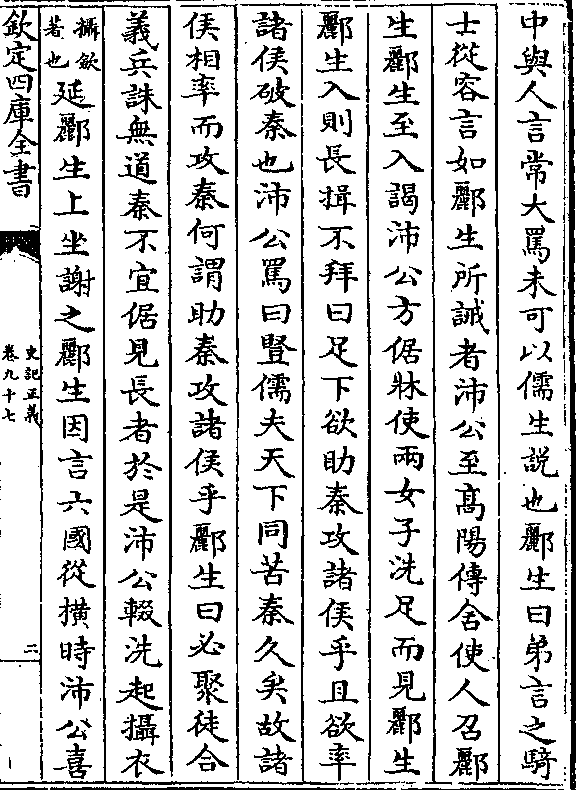 中與人言常大罵未可以儒生説也酈生曰弟言之騎
士從容言如酈生所誡者沛公至髙陽傳舍使人召酈
生酈生至入謁沛公方倨牀使兩女子洗足而見酈生
酈生入則長揖不拜曰足下欲助秦攻諸侯乎且欲率
諸侯破秦也沛公罵曰豎儒夫天下同苦秦久矣故諸
侯相率而攻秦何謂助秦攻諸侯乎酈生曰必聚徒合
義兵誅無道秦不宜倨見長者於是沛公輟洗起攝衣
攝斂
著也
延酈生上坐謝之酈生因言六國從横時沛公喜
欽定四庫全書
史記正義
卷九十七
二